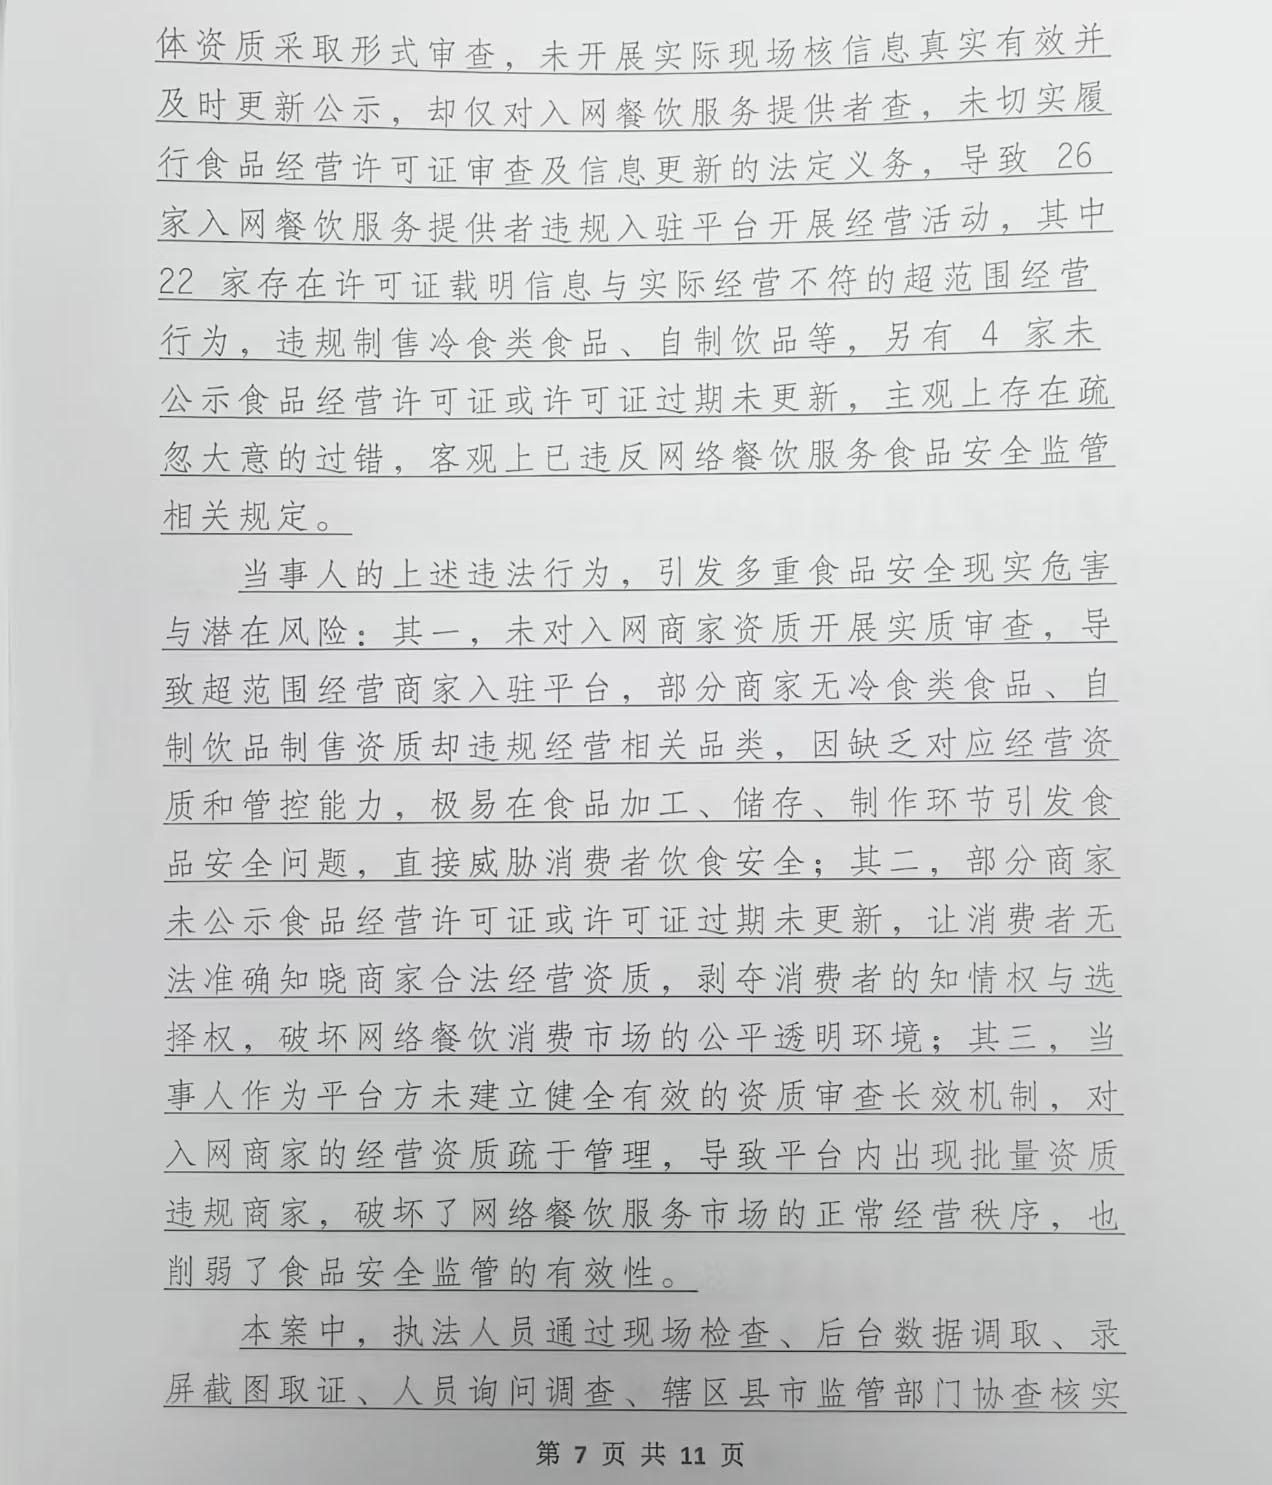 体资质采取形式审查，未开展实际现场核信息真实有效并
及时更新公示，却仅对入网餐饮服务提供者查，未切实履
行食品经营许可证审查及信息更新的法定义务，导致 26
家入网餐饮服务提供者违规入驻平台开展经营活动，其中
22 家存在许可证载明信息与实际经营不符的超范围经营
行为，违规制售冷食类食品、自制饮品等，另有 4 家未
公示食品经营许可证或许可证过期未更新，主观上存在疏
忽大意的过错，客观上已违反网络餐饮服务食品安全监管
相关规定。
当事人的上述违法行为，引发多重食品安全现实危害
与潜在风险：其一，未对入网商家资质开展实质审查，导
致超范围经营商家入驻平台，部分商家无冷食类食品、自
制饮品制售资质却违规经营相关品类，因缺乏对应经营资
质和管控能力，极易在食品加工、储存、制作环节引发食
品安全问题，直接威胁消费者饮食安全；其二，部分商家
未公示食品经营许可证或许可证过期未更新，让消费者无
法准确知晓商家合法经营资质，剥夺消费者的知情权与选
择权，破坏网络餐饮消费市场的公平透明环境；其三，当
事人作为平台方未建立健全有效的资质审查长效机制，对
入网商家的经营资质疏于管理，导致平台内出现批量资质
违规商家，破坏了网络餐饮服务市场的正常经营秩序，也
削弱了食品安全监管的有效性。
本案中，执法人员通过现场检查、后台数据调取、录
屏截图取证、人员询问调查、辖区县市监管部门协查核实
第 7 页 共 11 页